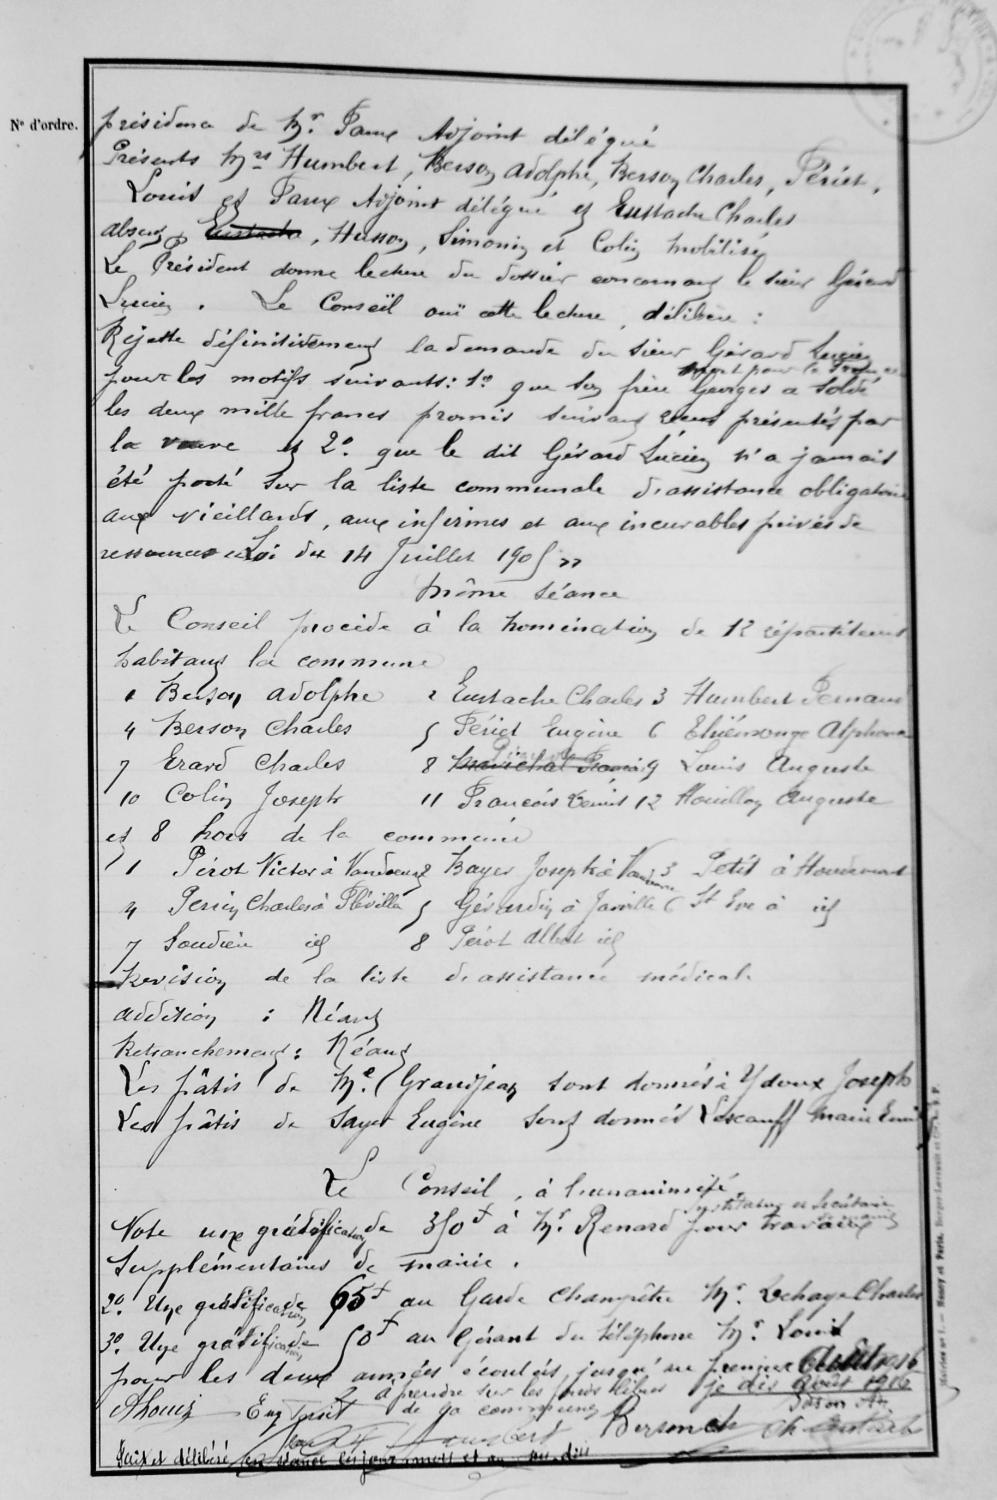 Nº d'ordre.
présidence de Mr. Paux Adjoint délégué
Présents Mrs Humbert, Berson Adolphe, Berson Charles, Périet,
Louis et Paux Adjoint délégué et Eustache Charles
absents Eustache, Husson, Simonin et Colin mobilisés
Le Président donne lecture du dossier concernant le sieur Gérard
Lucien. Le Conseil ouï cette lecture, délibère :
Rejette définitivement la demande du sieur Gérard Lucien
pour les motifs suivants : 1º que son frère Georges a soldé
les deux mille francs promis suivant reçus présentés par
la veuve et 2º. que le dit Gérard Lucien n'a jamais
été porté sur la liste communale d'assistance obligatoire
aux vieillards, aux infirmes et aux incurables privés de
ressources Loi du 14 Juillet 1905 »
Même séance
Le Conseil procède à la nomination de 12 répartiteurs
habitant la commune
1 Berson Adolphe 2 Eustache Charles 3 Humbert Fernand
4 Berson Charles 5 Périet Eugène 6 Thiémonge Alphonse
7 Erard Charles 8 Maréchal 9 Louis Auguste
10 Colin Joseph 11 François 12 Houillon Auguste
et 8 hors de la commune
1 Pérot Victor à 2 Bayer Joseph à 3 Petit à Houdemont
4 Perrin Charles à Fléville 5 Gérardin à Jarville 6 St Eve à id
7 Soudière id 8 Pérot Albert id
Revision de la liste d'assistance médicale
addition : Néant
Retranchement : Néant
Les pâtis de Me. Grandjean sont donnés à Ydoux Joseph
Les pâtis de Sayer Eugène sont donnés Lescauff Marie
Le Conseil, à l'unanimité
Instituteur et Secrétaire
Vote une gratification de 350f à Mr. Renard pour travaux
supplémentaires de mairie.
2º. Une gratification de 65f au Garde Champêtre Mr. Lehaye Charles
3º. Une gratification de 50f au Gérant du téléphone Mr. Louis
pour les deux années écoulées jusqu'au premier
à prendre sur les fonds libres je dis août 1916
de la commune
Eug Périet Humbert Berson Ch Ch Eustache
Fait et délibéré en séance les jour, mois et an